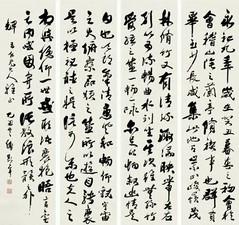 永和九年歲在癸丑暮春之初會於
會稽山陰之蘭亭脩禊事也群賢
畢至少長咸集此地有崇山峻嶺茂
林脩竹又有清流激湍映帶左右
引以為流觴曲水列坐其次雖無絲竹
管弦之盛一觴一詠亦足以暢敘幽情是
日也天朗氣清惠風和暢仰觀宇宙
之大俯察品類之盛所以遊目騁懷
足以極視聽之娛信可樂也夫人之
相與俯仰一世或取諸懷抱晤言一室
之內或因寄所託放浪形骸之外